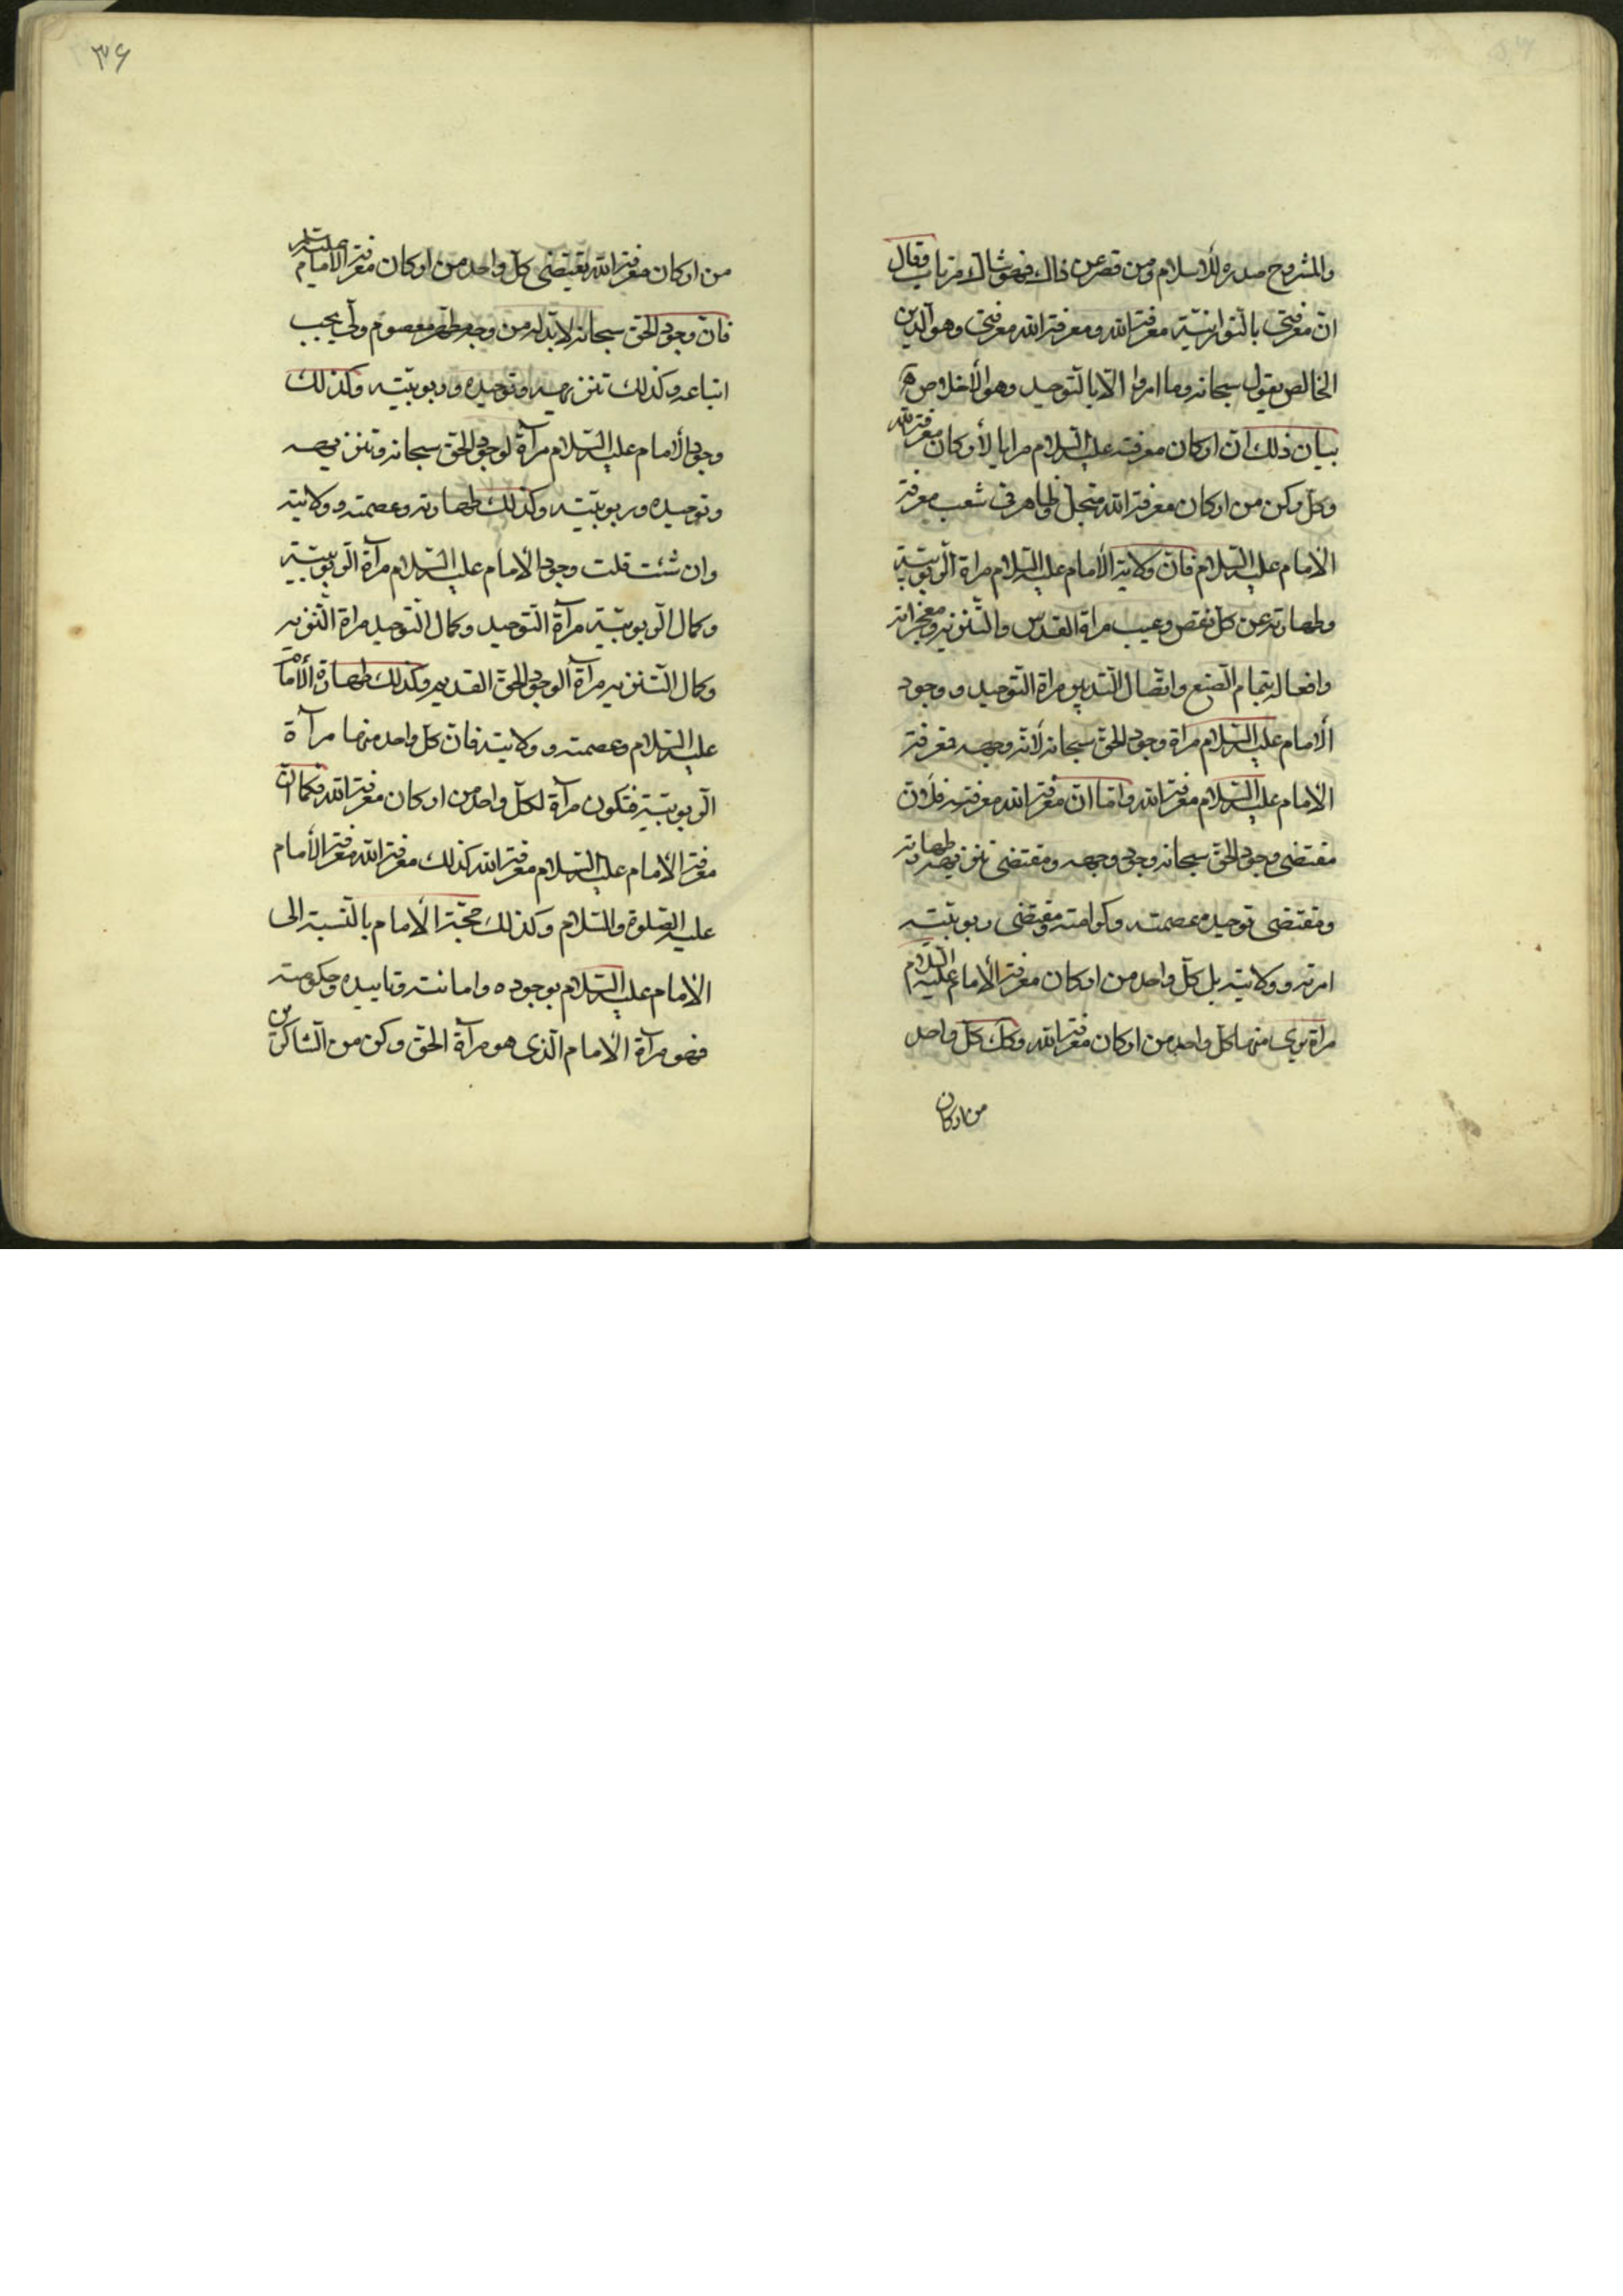 والمشروح صدره للاسلام ومن قصر عن ذلك فهو شاك مرتاب وقال
ان معرفتى بالنورانيّة معرفة الله ومعرفة الله معرفتى وهو الدين
الخالص بقول سبحانه وما امروا الّا بالتوحيد وهو الأخلاص
بيان ذلك انّ اركان معرفته عليه السّلام مرايا لأركان معرفة الله
وكلّ ركن من اركان معرفة الله متجلّ ظاهر فى شعب معرفة
الامام عليه السّلام فانّ ولاية الأمام عليه السّلام مراة الرّبوبيّة
وطهارته عن كلّ نقص وعيب مراة القدس والتّنزيه ومعجزاته
وافعاله بتمام الصّنع واتّصال التّدبير مراة التوحيد و وجود
الأمام عليه السّلام مراة وجود الحقّ سبحانه لأنّه وجهه فمعرفة
الامام عليه السّلام معرفة الله وامّا انّ معرفة الله معرفته فلأنّ
مقتضى وجود الحقّ سبحانه وجود وجهه ومقتضى تنزيهه طهارته
ومقتضى توحيده عصمته وكرامته ومقتضى ربوبيّته
امرته و ولايته بل كلّ واحد من اركان معرفة الأمام عليه السّلام
مراة يرى منها كلّ واحد من اركان معرفة الله وكك كلّ واحد
من اركان
٣۶
من اركان معرفة الله تقتضى كلّ واحد من اركان معرفة الأمام عليه السلم
فانّ وجود الحقّ سبحانه لابدّ له من وجه مطهّر معصوم ولى يجب
اتباعه وكذلك تنزيهه وتوحيده وربوبيّته وكذلك
وجود الأمام عليه السّلام مرآة لوجود الحقّ سبحانه وتنزيهه
وتوحيده وربوبيّته وكذلك طهارته وعصمته و ولايته
وان شئت قلت وجود الأمام عليه السّلام مرآة الرّبوبيّة
وكمال الرّبوبيّة مرآة التّوحيد وكمال التّوحيد مراة التّنزيه
وكمال التّنزيه مرآة الوجود الحقّ القديم وكذلك طهارة الأمام
عليه السّلام وعصمته و ولايته فانّ كلّ واحد منها مرآة
الرّبوبيّة فتكون مرآة لكلّ واحد من اركان معرفة الله فكما انّ
معرفة الأمام عليه السّلام معرفة الله كذلك معرفة الله معرفة الأمام
عليه الصّلوة والسّلام وكذلك حجّة الأمام بالنّسبة الى
الامام عليه السّلام بوجوده وامانته وتاييده وحكومته
فهو مرآة الأمام الّذى هو مرآة الحقّ وكن من الشّاكرين